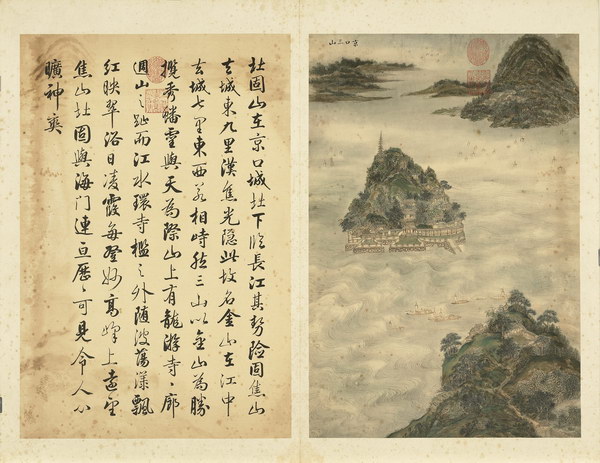 京口三山
北固山在京口城北下临長江其勢險固焦山
去城東九里漢焦光隱此故名金山在江中
去城七里東西若相峙然三山以金山為勝
攬秀蟠雲與天為際山上有龍游寺〻廊
週山之趾而江水環寺檻之外随波蕩漾飄
紅映翠浴日凌霞每登妙高峰上遠望
焦山北固與海門連亘歷〻可見令人心
曠神爽